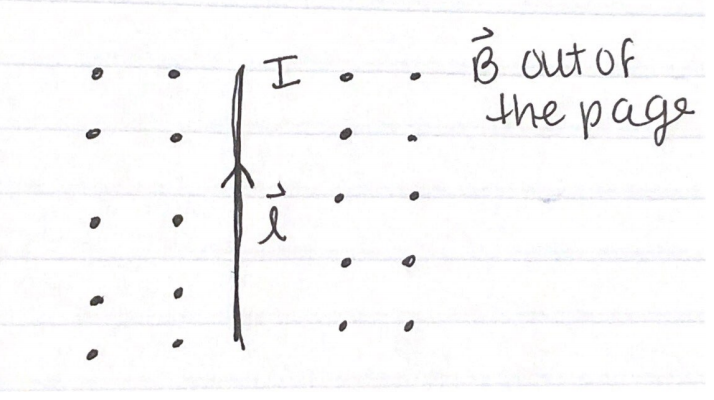 I
B⃗ out of
the page
l⃗